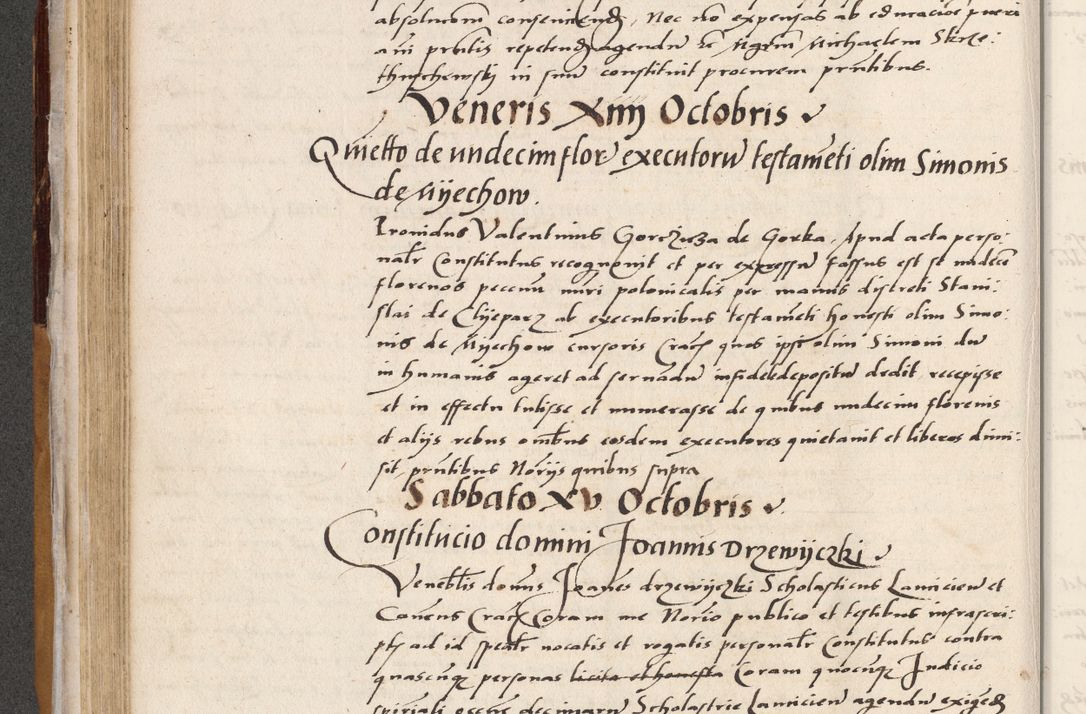 absolucionem consenciendi, Nec no expensas ab educacioe pueri
ani pntis repetendi agendu et Mgrm Michaelem Skrze:
thuschewskj in suu constituit procurem pntibus.
Veneris Xiiij Octobris
Quietto de undecim flor executoru testameti olim Simonis
de Myechow.
Providus Valentinus Gorczicza de Gorka, Apud acta perso:
nalr Constitutus recognovit et per expressu fassus est se undeci
florenos pecciun nuri polonicalis per manus discreti Stani:
slai de Clijeparz ab executoribus testameti honesti olim Simo:
nis de Myechow cursoris Crac quos ipse olim Simoni du
in humanis ageret ad servandu in fidele depositu dedit, recepisse
et in effectu tulisse et numerasse de quibus undecim florenis
et alijs rebus omibus eosdem executores quietavit et liberos dimi:
sit, pntibus Norijs quibus supra
Sabbato XV Octobris
Constitucio domini Joannis Drzewijczki
Veneblis domus Joanes drzewijczki Scholasticus Lanicien et
Canens Crac Coram me Norio publico et testibus infrascri:
ptis ad id spealr vocatis et rogatis personalr Constitutus contra
quascunq personas licita et honesta Coram quocunq Judicio
spiriali occne decimaru Scholastrie Lanicien agendu exigedi